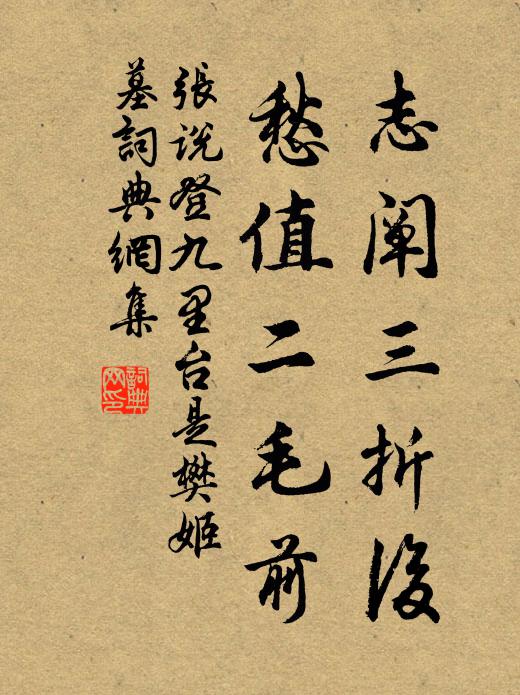 志阐三折後
愁值二毛前
張説登九里台是樊姬
墓詞典網集
詞典
网印